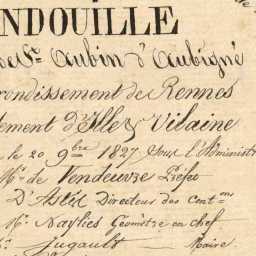 NDOUILLE
de St. Aubin d'Aubigné
rondissement de Rennes
tement d'Ille & Vilaine
le 20 9bre 1827 sous l'Administr
Mr. de Vendeuvre Préfet
D'Astié Directeur des Contons
Mr. Naylies Géomètre en chef
Jugault Maire